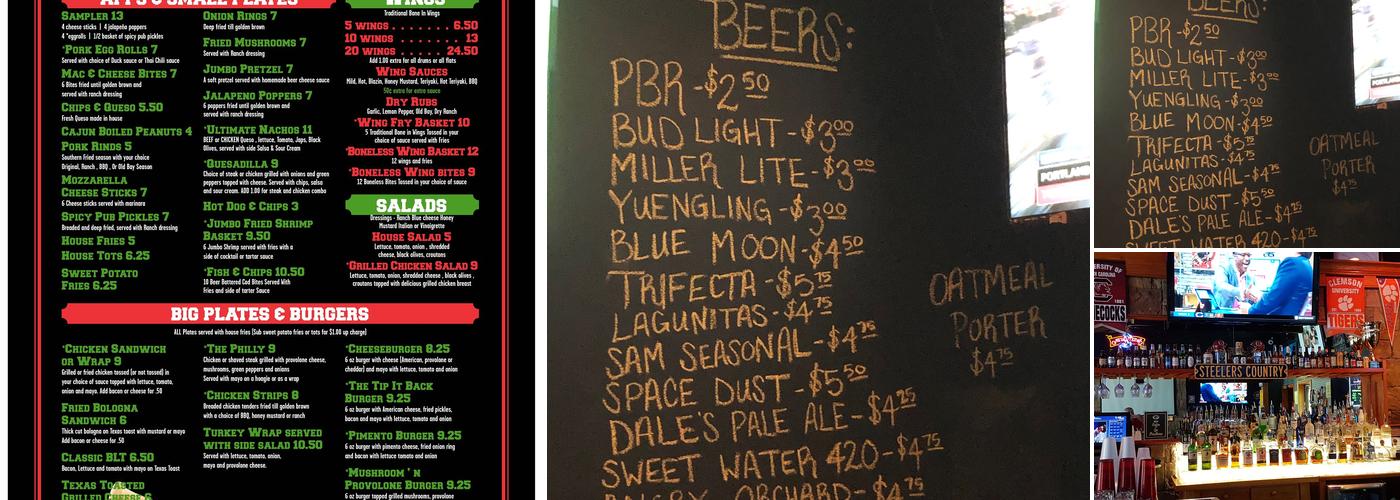 APPS & SMALL PLATES
SAMPLER 13
4 cheese sticks | 4 jalapeño poppers
4 *eggrolls | 1/2 basket of spicy pub pickles
*PORK EGG ROLLS 7
Served with choice of Duck sauce or Thai Chili sauce
MAC & CHEESE BITES 7
6 Bites fried until golden brown and
served with ranch dressing
CHIPS & QUESO 5.50
Fresh Queso made in house
CAJUN BOILED PEANUTS 4
PORK RINDS 5
Southern fried season with your choice
Original, Ranch , BBQ , Or Old Bay Season
MOZZARELLA
CHEESE STICKS 7
6 Cheese sticks served with marinara
SPICY PUB PICKLES 7
Breaded and deep fried, served with Ranch dressing
HOUSE FRIES 5
HOUSE TOTS 6.25
SWEET POTATO
FRIES 6.25
ONION RINGS 7
Deep fried till golden brown
FRIED MUSHROOMS 7
Served with Ranch dressing
JUMBO PRETZEL 7
A soft pretzel served with homemade beer cheese sauce
JALAPENO POPPERS 7
6 poppers fried until golden brown and
served with ranch dressing
*ULTIMATE NACHOS 11
BEEF or CHICKEN Queso , lettuce, Tomato, Japs, Black
Olives, served with side Salsa & Sour Cream
*QUESADILLA 9
Choice of steak or chicken grilled with onions and green
peppers tapped with cheese. Served with chips, salsa
and sour cream. ADD 1.00 for steak and chicken combo
HOT DOG & CHIPS 3
*JUMBO FRIED SHRIMP
BASKET 9.50
6 Jumbo Shrimp served with fries with a
side of cocktail or tartar sauce
*FISH & CHIPS 10.50
10 Beer Battered Cod Bites Served With
Fries and side of tarter Sauce
WINGS
Traditional Bone In Wings
5 WINGS . . . . . . . 6.50
10 WINGS . . . . . . 13
20 WINGS . . . . . . 24.50
Add 1.00 extra for all drums or all flats
WING SAUCES
Mild, Hot, Blazin, Honey Mustard, Teriyaki, Hot Teriyaki, BBQ
50c extra for extra sauce
DRY RUBS
Garlic, Lemon Pepper, Old Bay, Dry Ranch
*WING FRY BASKET 10
5 Traditional Bone in Wings Tossed in your
choice of sauce served with fries
*BONELESS WING BASKET 12
12 wings and fries
*BONELESS WING BITES 9
12 Boneless Bites Tossed in your choice of sauce
SALADS
Dressings - Ranch Blue cheese Honey
Mustard Italian or Vinaigrette
HOUSE SALAD 5
Lettuce, tomato, onion , shredded
cheese, black olives, croutons
*GRILLED CHICKEN SALAD 9
Lettuce, tomato, onion, shredded cheese , black olives ,
croutons tapped with delicious grilled chicken breast
BIG PLATES & BURGERS
ALL Plates served with house fries (Sub sweet potato fries or tots for $1.00 up charge)
*CHICKEN SANDWICH
OR WRAP 9
Grilled or fried chicken tossed (or not tossed) in
your choice of sauce tapped with lettuce, tomato,
onion and mayo. Add bacon or cheese for .50
FRIED BOLOGNA
SANDWICH 6
Thick cut bologna on Texas toast with mustard or mayo
Add bacon or cheese for .50
CLASSIC BLT 6.50
Bacon, Lettuce and tomato with mayo on Texas Toast
TEXAS TOASTED
GRILLED CHEESE 6
*THE PHILLY 9
Chicken or shaved steak grilled with provolone cheese,
mushrooms, green peppers and onions
Served with mayo on a hoagie or as a wrap
*CHICKEN STRIPS 8
Breaded chicken tenders fried till golden brown
with a choice of BBQ, honey mustard or ranch
TURKEY WRAP SERVED
WITH SIDE SALAD 10.50
Served with lettuce, tomato, onion,
mayo and provolone cheese.
*CHEESEBURGER 8.25
6 oz burger with cheese (American, provolone or
cheddar) and mayo with lettuce, tomato and onion
*THE TIP IT BACK
BURGER 9.25
6 oz burger with American cheese, fried pickles,
bacon and mayo with lettuce, tomato and onion
*PIMENTO BURGER 9.25
6 oz burger with pimento cheese, fried onion ring
and bacon with lettuce, tomato and onion
*MUSHROOM ' N
PROVOLONE BURGER 9.25
6 oz burger tapped grilled mushrooms, provolone
BEERS:
PBR -$2 50
BUD LIGHT -$3 00
MILLER LITE -$3 00
YUENGLING -$3 00
BLUE MOON -$4 50
TRIFECTA -$5 75
LAGUNITAS -$4 75
SAM SEASONAL -$4 75
SPACE DUST -$5 50
DALE'S PALE ALE -$4 25
SWEET WATER 420 -$4 75
ANGRY ORCHARD -$4 75
OATMEAL
PORTER
$4 75
PORTLAND
BEERS:
PBR -$2 50
BUD LIGHT -$3 00
MILLER LITE -$3 00
YUENGLING -$3 00
BLUE MOON -$4 50
TRIFECTA -$5 75
LAGUNITAS -$4 75
SAM SEASONAL -$4 75
SPACE DUST -$5 50
DALE'S PALE ALE -$4 25
SWEET WATER 420 -$4 75
OATMEAL
PORTER
$4 75
CLEMSON
UNIVERSITY
TIGERS
STEELERS COUNTRY